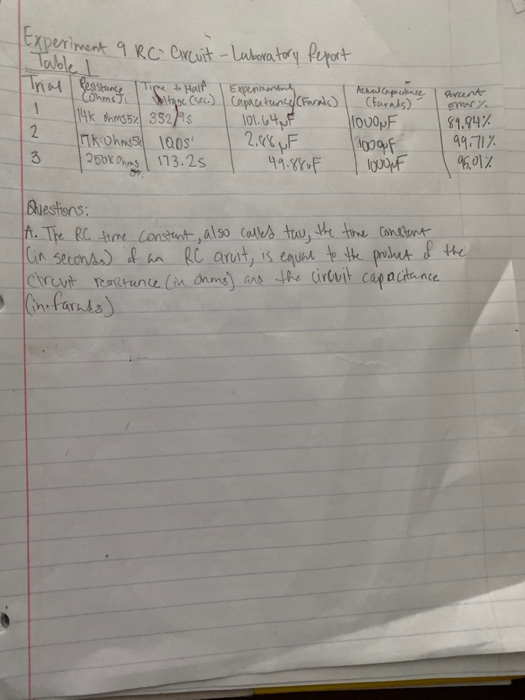 Experiment 9 RC-Circuit - Laboratory Report
Table 1
Trial Resistance (ohms) Time to Half Voltage (sec.) Experimental Capacitance (Farads) Actual Capacitance (farads) Percent error %
1 14K ohms 5% 101.64µF 1000µF 89.84%
2 17K Ohms 5% 2.88µF 1000µF 99.71%
3 200K Ohms 173.2s 49.88µF 1000µF 95.01%
Questions:
A. The RC time constant, also called tau, the time constant
(in seconds) of an RC circuit, is equal to the product of the
circuit resistance (in ohms) and the circuit capacitance
(in farads)